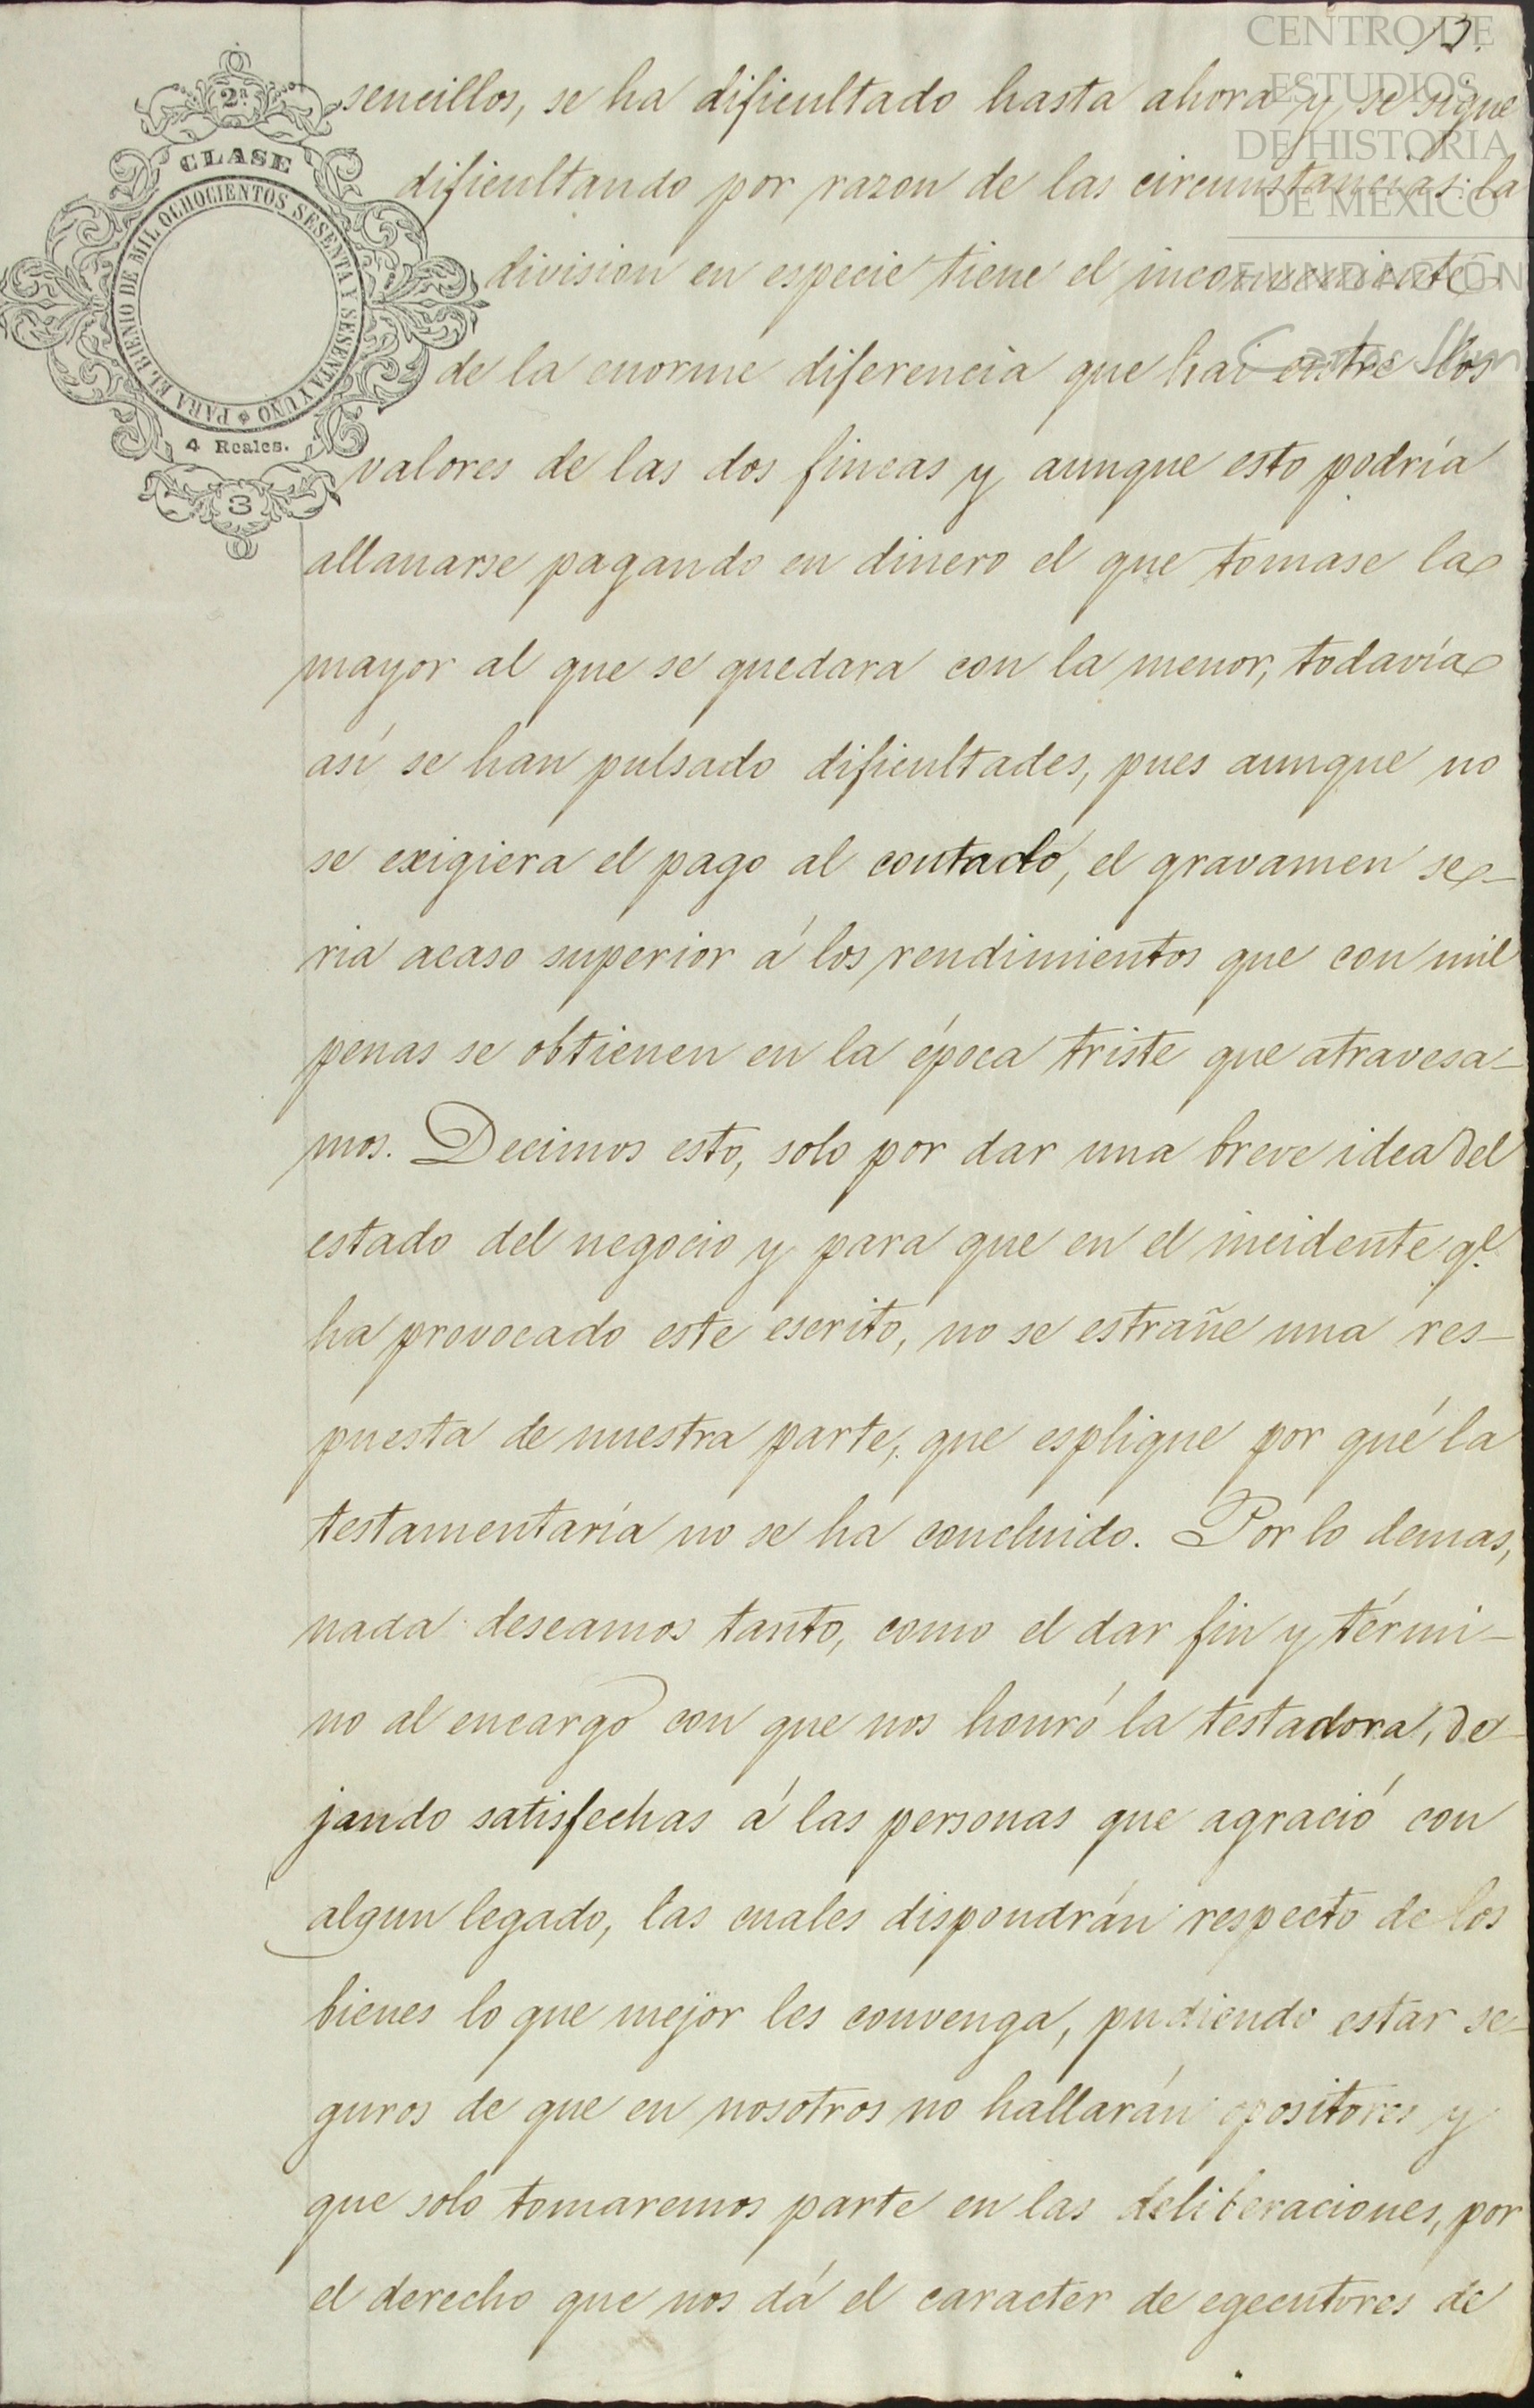 13.
CENTRO DE
ESTUDIOS
DE HISTORIA
DE MEXICO
FUNDACIÓN
Carlos Slim
2ª
CLASE
PARA EL BIENIO DE MIL OCHOCIENTOS SESENTA Y SESENTA Y UNO
4 Reales.
3
sencillos, se ha dificultado hasta ahora y se sigue
dificultando por razon de las circunstancias: la
division en especie tiene el inconveniente
de la enorme diferencia que hai entre los
valores de las dos fincas y aunque esto podría
allanarse pagando en dinero el que tomase la
mayor al que se quedara con la menor, todavía
así se han pulsado dificultades, pues aunque no
se exigiera el pago al contado, el gravamen se-
ria acaso superior á los rendimientos que con mil
penas se obtienen en la época triste que atravesa-
mos. Decimos esto, solo por dar una breve idea del
estado del negocio y para que en el incidente q.e
ha provocado este escrito, no se estrañe una res-
puesta de nuestra parte, que esplique por qué la
testamentaría no se ha concluido. Por lo demas,
nada deseamos tanto, como el dar fin y térmi-
no al encargo con que nos honró la testadora, de-
jando satisfechas á las personas que agració con
algun legado, las cuales dispondrán respecto de los
bienes lo que mejor les convenga, pudiendo estar se-
guros de que en nosotros no hallarán opositores y
que solo tomaremos parte en las deliberaciones, por
el derecho que nos dá el caracter de egecutores de